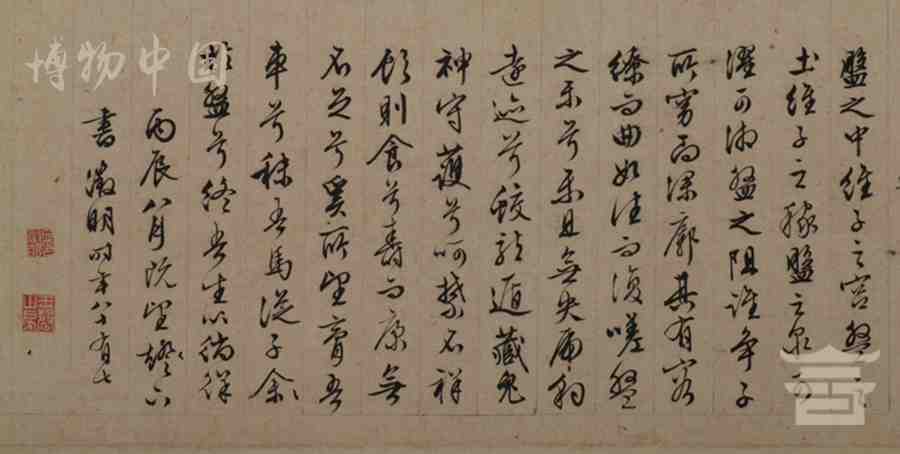 博物中国
盤之中維子之宮盤之
土維子之稼盤之泉可
濯可湘盤之阻誰爭子
所窈而深廓其有容
繚而曲如往而復嗟盤
之樂兮樂且無央虎豹
遠迹兮蛟龍遁藏鬼
神守護兮呵禁不祥
飲則食兮壽而康無
不足兮奚所望膏吾
車兮秣吾馬從子
於盤兮終吾生以徜徉
丙辰八月既望燈下
書徵明時年八十有七